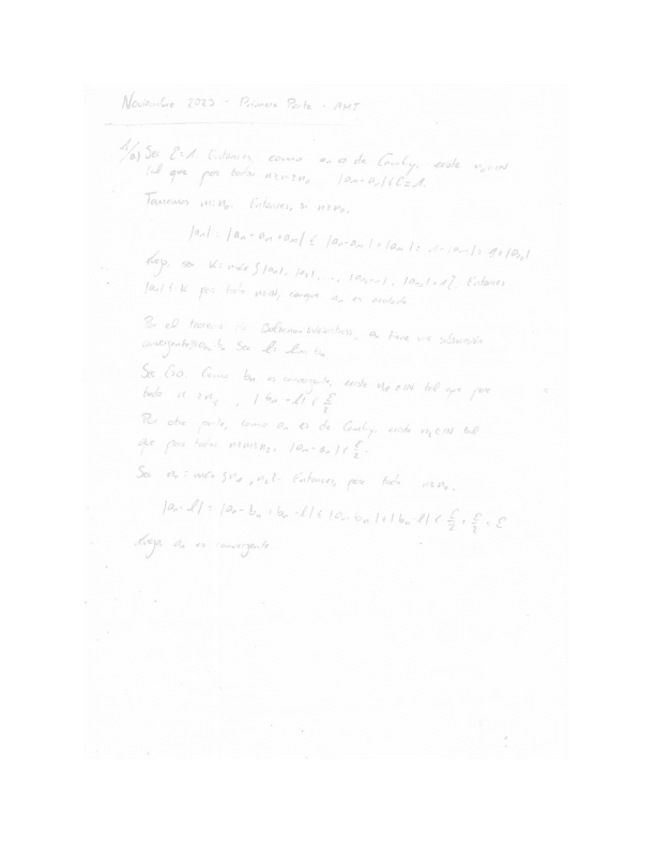 Noviembre 2023 - Primera Parte - AMI
1/a) Sea ε=1. Entonces, como an es de Cauchy, existe n0∈IN
tal que para todos n≥m≥n0, |an-am|<ε=1.
Tomamos m=n0. Entonces, si n≥n0,
|an| = |an - am + am| ≤ |an-am| + |am| = 1+
Luego, sea K = máx {|a1|, |a2|, ..., Entonces
|an| ≤ K para todo n∈IN, an es acotada
Por el teorema de Bolzano-Weierstrass, an tiene una subsucesión
convergente, bn. Sea l su límite
Sea ε>0. Como bn es convergente, existe ∈IN tal que para
todo n ≥ , |bn - l| < ε/2
Por otra parte, como an es de Cauchy, existe n2∈IN tal
que para todos n≥m≥n2, |an-am| < ε/2.
Sea = máx { , n2}. Entonces, para todo n≥n0,
|an-l| = |an-bn + bn-l| ≤ |an-bn| + |bn-l| < ε/2 + ε/2 = ε
Luego an es convergente